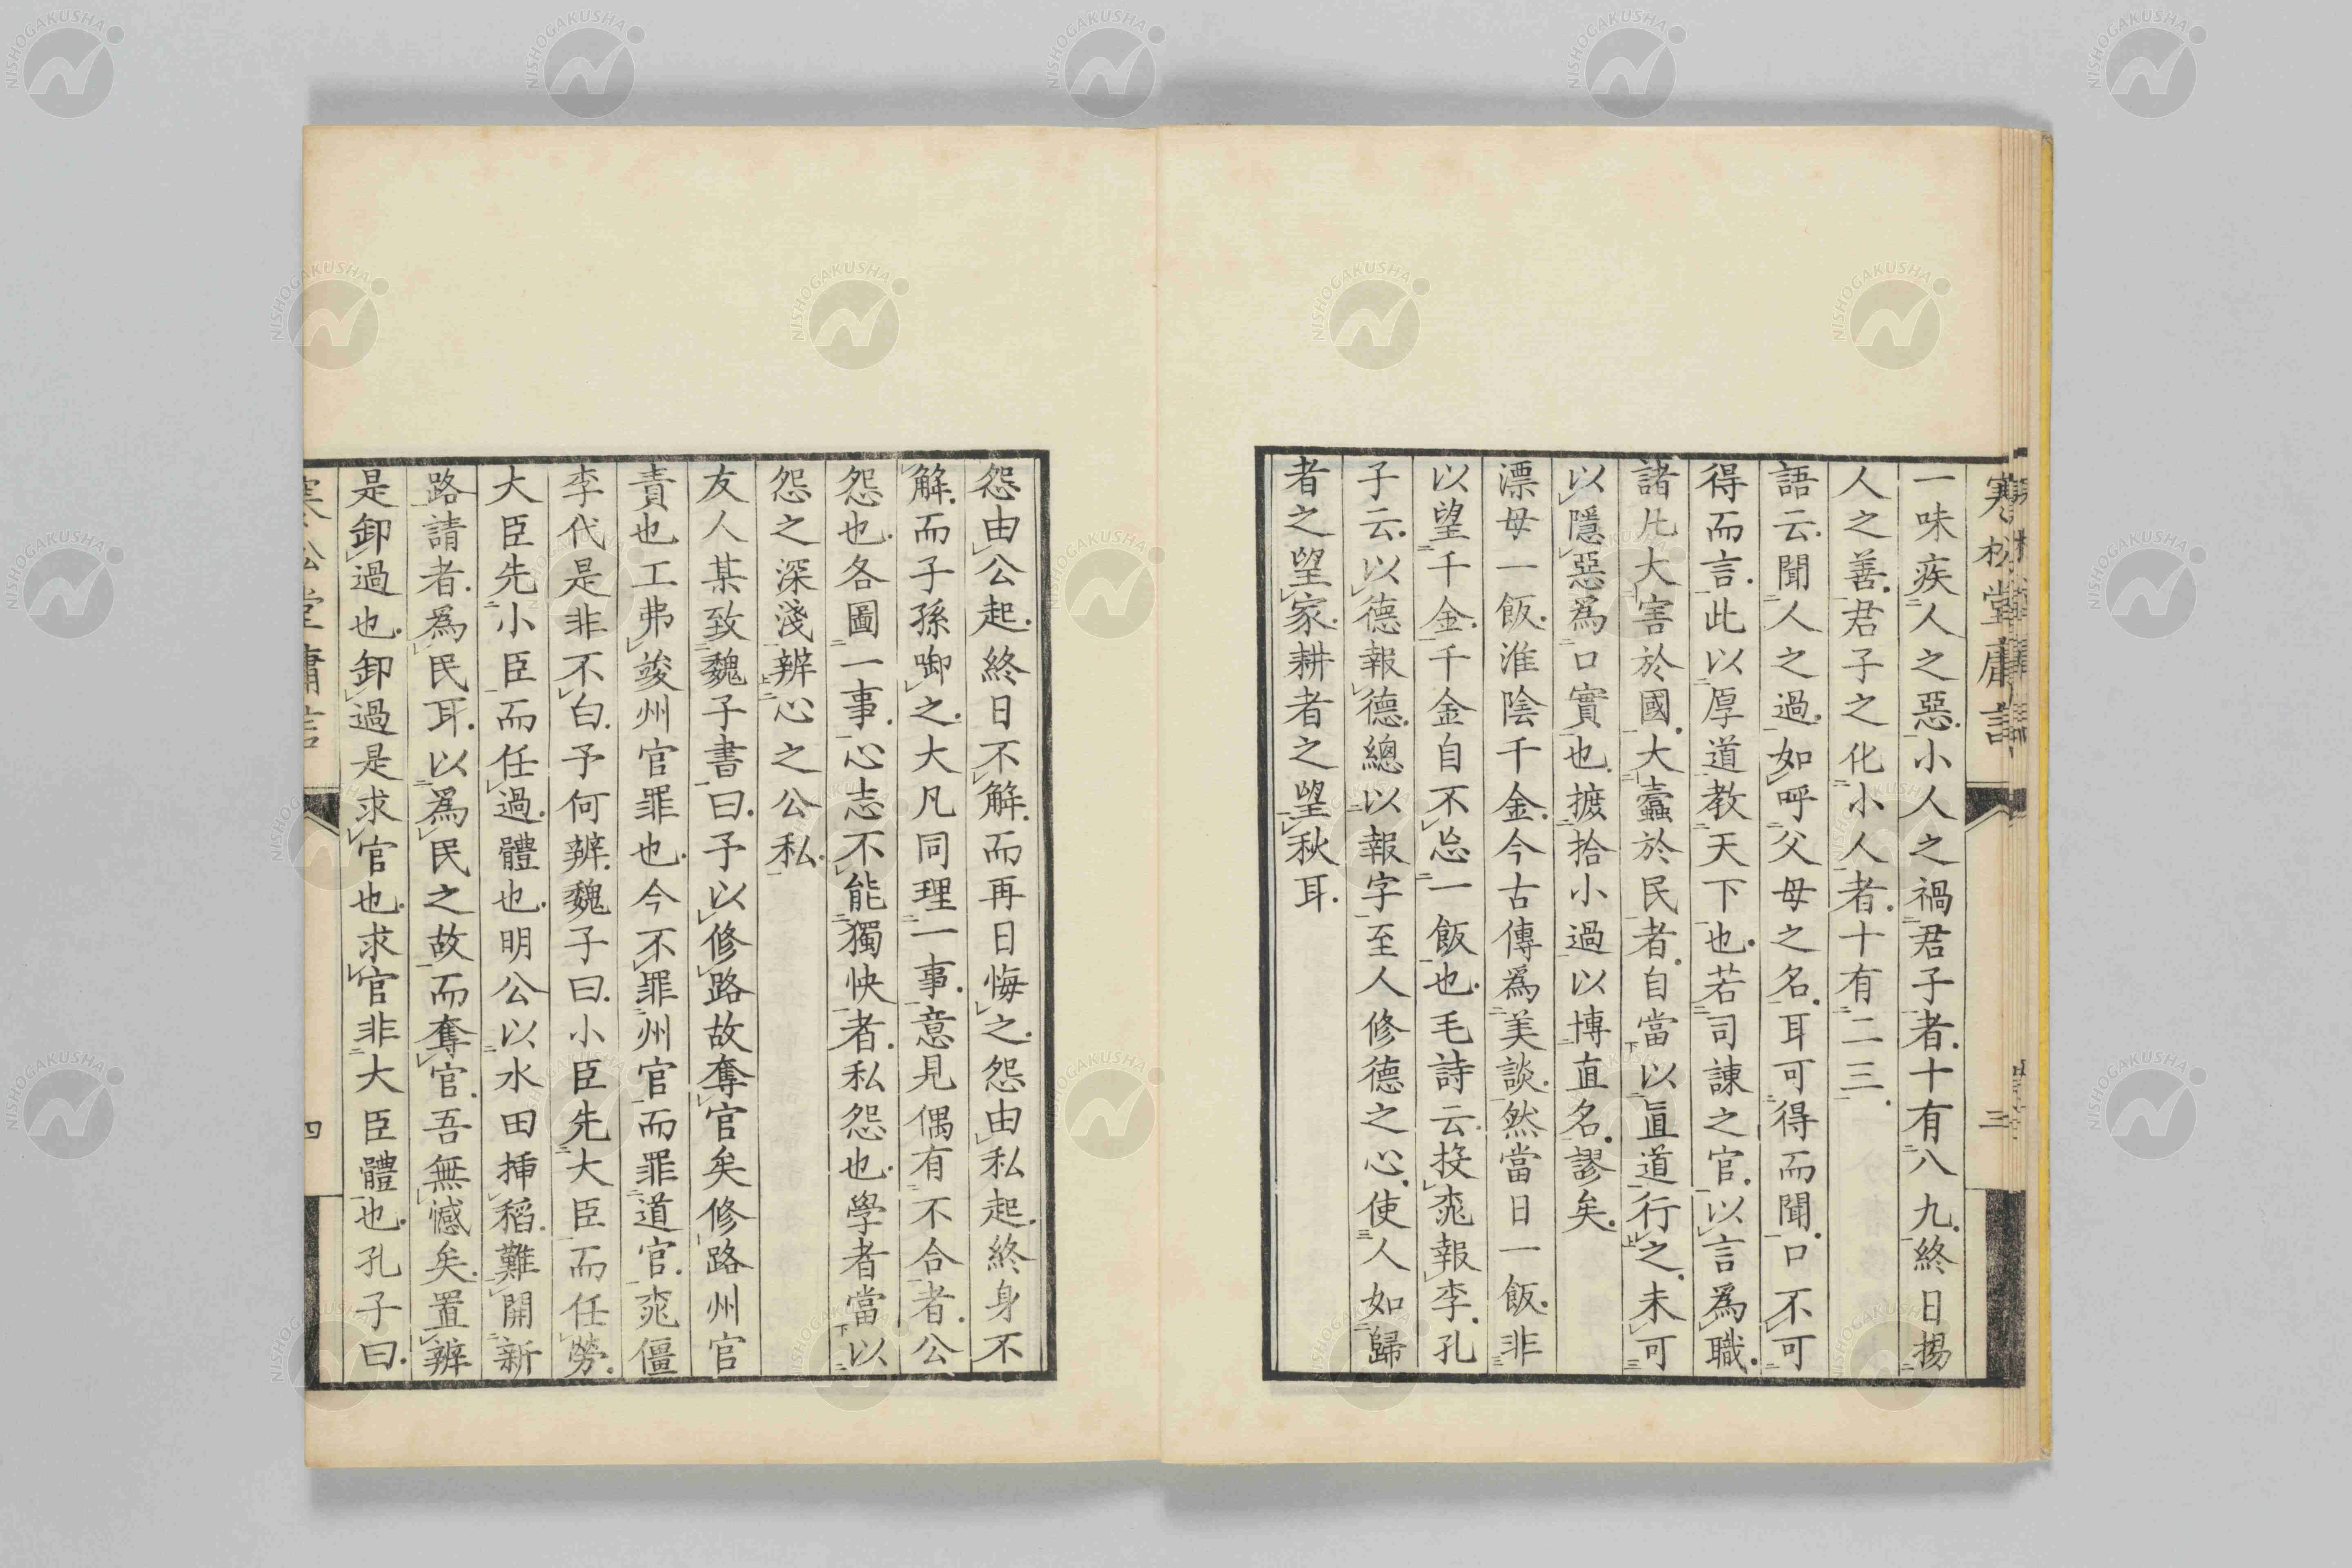 寒松堂庸言
三
一味疾人之惡小人之禍君子者十有八九終日揚
人之善君子之化小人者十有二三
語云聞人之過如呼父母之名耳可得而聞口不可
得而言此以厚道教天下也若司諫之官以言爲職
諸凡大害於國大蠹於民者自當以直道行之未可
以隱惡爲口實也摭拾小過以博直名謬矣
漂母一飯淮陰千金今古傳爲美談然當日一飯非
以望千金千金自不忘一飯也毛詩云投桃報李孔
子云以德報德總以報字至人修德之心使人如歸
者之望家耕者之望秋耳
怨由公起終日不解而再日悔之怨由私起終身不
解而子孫啣之大凡同理一事意見偶有不合者公
怨也各圖一事心志不能獨快者私怨也學者當以
怨之深淺辨心之公私
友人某致魏子書曰予以修路故奪官矣修路州官
責也工弗竣州官罪也今不罪州官而罪道官桃僵
李代是非不白予何辨魏子曰小臣先大臣而任勞
大臣先小臣而任過體也明公以水田挿稻難開新
路請者爲民耳以爲民之故而奪官吾無憾矣置辨
是卸過也卸過是求官也求官非大臣體也孔子曰
四